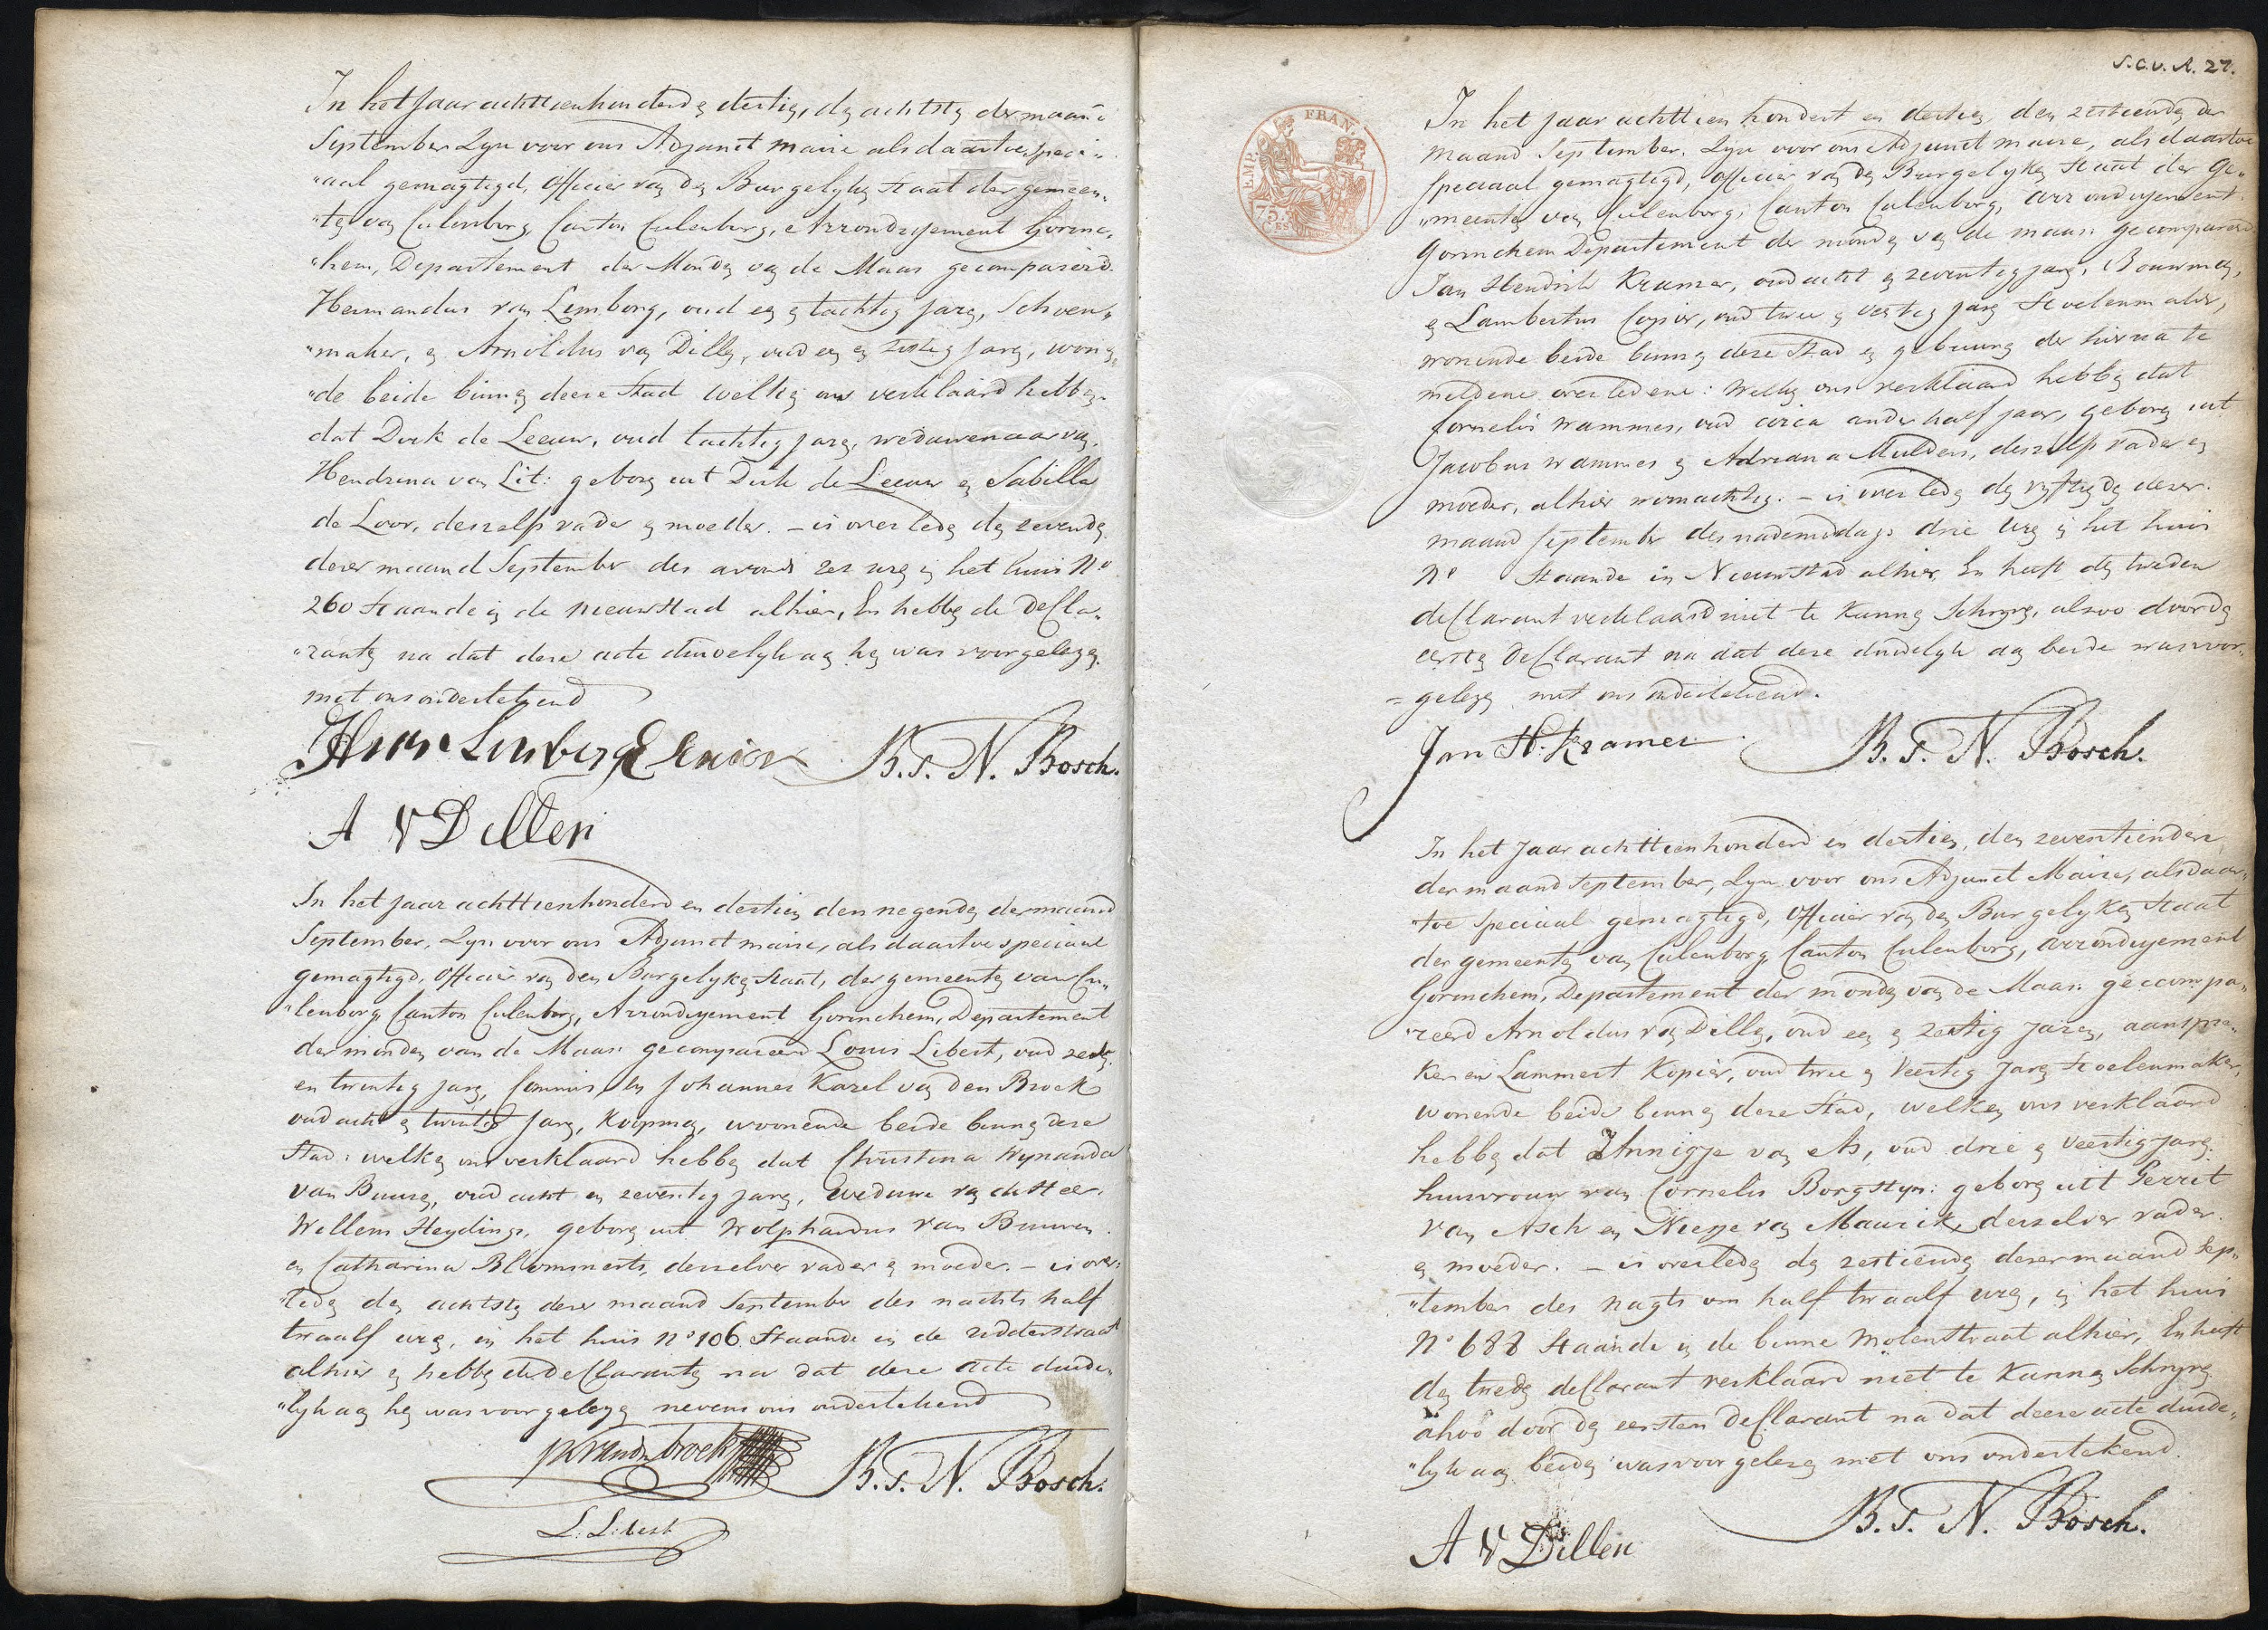 In het Jaar achttienhonderd en dertien, den achtsten der maand
September Zyn voor ons Adjunct maire als daartoe speci„
„aal gemagtigd, officier van den Burgelyken Staat der gemeen„
„te van Culenborg Canton Culenborg, Arrondissement Gorinc„
„hem, Departement der Monden van de Maas gecompareerd
Hermandus van Limborg, oud een en tachtig jaren, Schoen„
„maker, en Arnoldus van Dillen, oud een en zestig jaren, wonen„
„de beide binnen deese Stad welken ons verklaard hebben
dat Dirk de Leeuw, oud tachtig jaren, weduwenaar van
Hendrina van Lit: geboren uit Dirk de Leeuw en Sabilla
de Loor, deszelfs vader en moeder. – is overleden den zevenden
dezer maand September des avonds zes uren in het huis No
260 staande in de Nieuwstad alhier, En hebben de Decla„
„ranten na dat deze acte duidelyk aan hen was voorgelezen
met ons ondertekend
Herm Limberg B.T.N. Bosch.
A V Dillen
In het jaar achttienhonderd en dertien den negenden der maand
September, Zyn voor ons Adjunct maire, als daartoe speciaal
gemagtigd, officier van den Burgelyken Staat, der gemeente van Cu„
„lenborg Canton Culenborg, Arrondissement Gorinchem, Departement
der monden van de Maas gecompareerd Louis Libert, oud zes
en twintig jaren, Commis, en Johannes Karel van den Broek
oud acht en twintig jaren, Koopman, woonende beide binnen deze
Stad: welken ons verklaard hebben dat Christina Wynanda
van Buuren, oud acht en zeventig jaren, weduwe van de Heer
Willem Heydings, geboren uit Wolphardus van Buuren
en Catharina Blommerts, derzelver vader en moeder. – is over„
„leden den achtsten dezer maand September des nachts half
twaalf uren, in het huis no 106 Staande in de ridderstraat
alhier en hebben de declaranten na dat deze acte duide„
„lyk aan hen was voorgelezen nevens ons ondertekend
JK vanden broek B.T.N. Bosch.
L. Libert
S.C.v.A. 27.
EMP. FRAN.
75. CES
In het Jaar achttien hondert en dertien den zestiende der
maand September. Zyn voor ons Adjunct maire, als daartoe
speciaal gemagtigd, officier van den Burgelyken Staat der Ge„
„meente van Culenborg, Canton Culenborg, arrondissement
Gorinchem Departement der monden van de maas gecompareerd
Jan Hendrik Kramer, oud acht en zeventig jaren, Bouwman,
en Lambertus Copier, oud twee en veertig jaren Stoelenmaker,
wonende beide binnen deze Stad en gebuuren der hierna te
meldene overledene: Welken ons verklaard hebben dat
Cornelis Wammes, oud circa ander half jaar, geboren uit
Jacobus Wammes en Adriana Mulders, deszelfs vader en
moeder, alhier woonachtig. – is overleden den vyftienden dezer
maand September des nademiddags drie uren in het huis
No Staande in Nieuwstad alhier, En heeft den tweeden
declarant verklaard niet te kunnen Schryven, alzoo door den
eersten Declarant na dat deze duidelyk aan beide was voor„
„gelezen met ons ondertekend.
Jan H. Kramer B.T.N. Bosch.
In het Jaar achttienhonderd en dertien, den zeventienden
der maand September, Zyn voor ons Adjunct Maire, als daar„
„toe speciaal gemagtigd, officier van den Burgelyken Staat
der gemeente van Culenborg Canton Culenborg, arrondissement
Gorinchem, Departement der monden van de Maas gecompa„
„reerd Arnoldus van Dillen, oud een en zestig jaren, aanspre„
ker en Lammert Kopier, oud twee en veertig jaren Stoelenmaker,
wonende beide binnen deze Stad, welken ons verklaard
hebben dat Annigje van As, oud drie en veertig jaren
huisvrouw van Cornelis Borgstyn: geboren uit Gerrit
van Asch en Neesje van Maurik, derzelver vader
en moeder. – is overleden den zestienden dezer maand Sep„
„tember des nagts om half twaalf uren, in het huis
No 688 Staande in de binne Molenstraat alhier, En heeft
den tweeden declarant verklaard niet te kunnen Schryven
alzoo door den eersten Declarant na dat deeze acte duide„
„lyk aan beiden was voorgelezen met ons ondertekend.
A V Dillen B.T.N. Bosch.